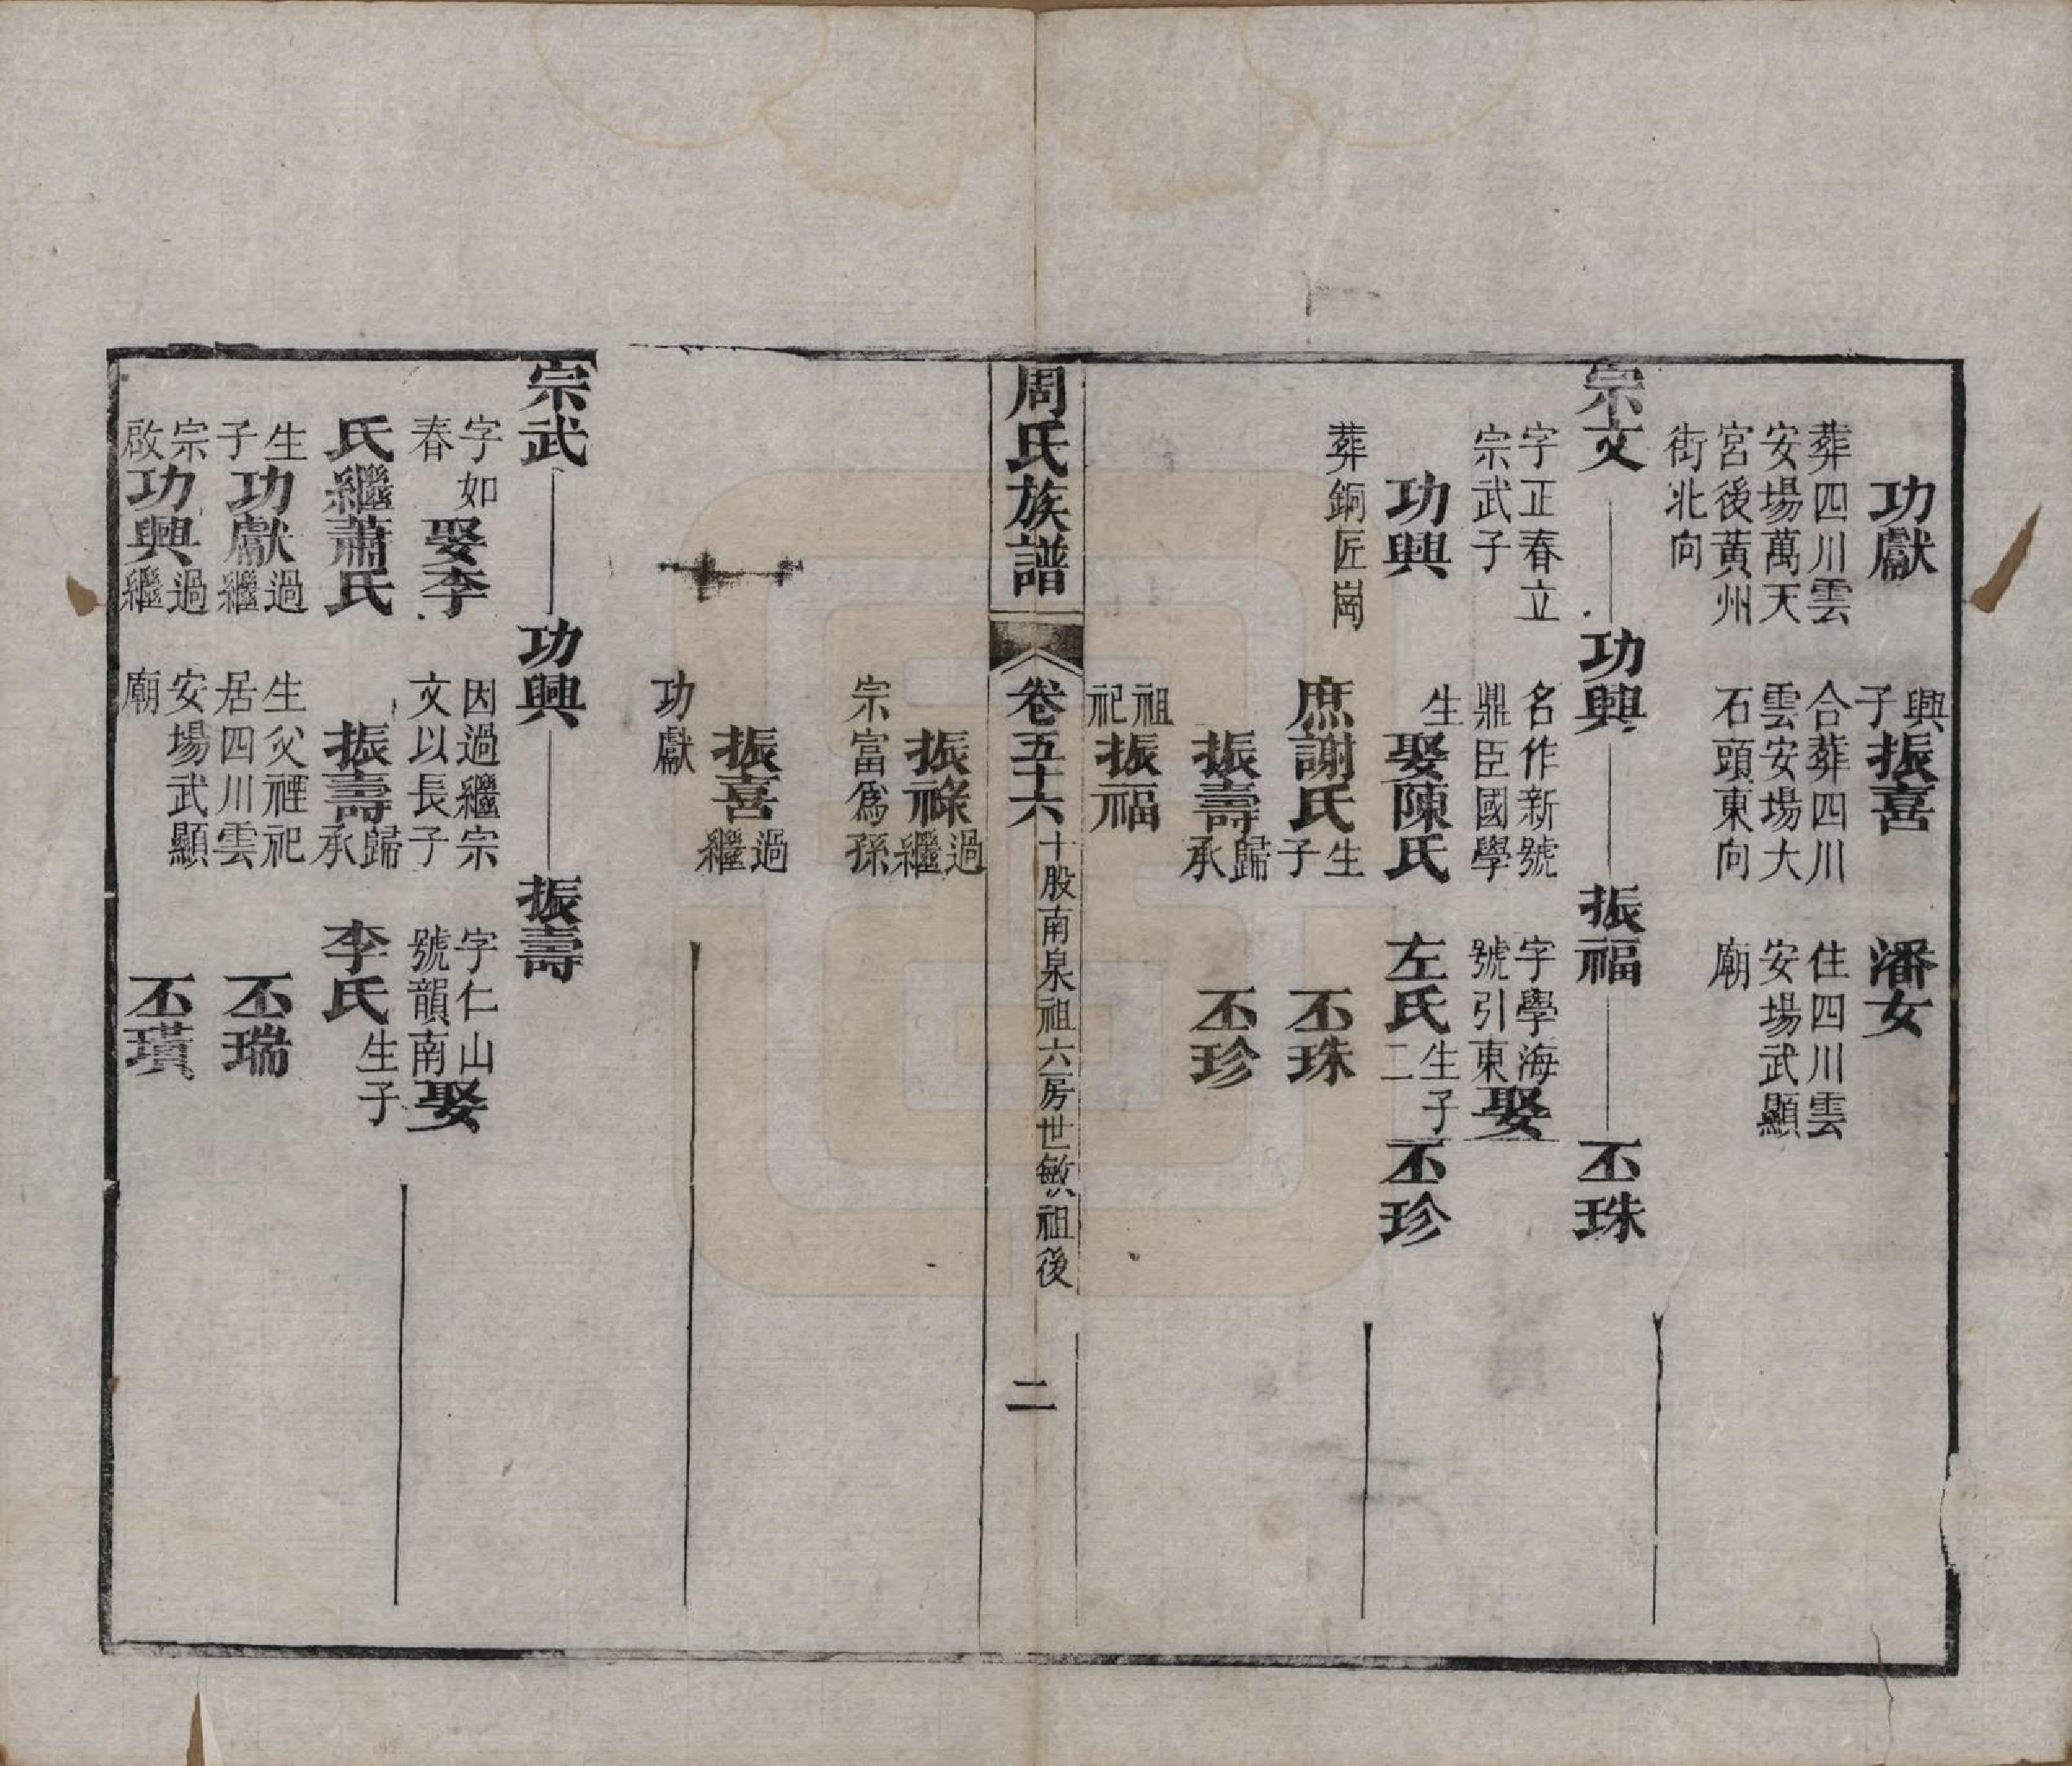 功獻
興子振喜
潘女
葬四川雲
安場萬天
宮後黃州
街北向
合葬四川
雲安場大
石頭東向
住四川雲
安場武顯
廟
宗文
功興
振福
丕珠
字正春立
宗武子
名作新號
鼎臣國學
字學海
號引東娶
功興
生娶陳氏
左氏生子二
丕珍
葬銅匠崗
庶謝氏生子
丕珠
振壽歸承
丕珍
祖祀振福
周氏族譜
卷五十六
十股南泉祖六房世敏公祖後
二
振祿過繼
宗富爲孫
振喜過繼
功獻
宗武
功興
振壽
字如春娶李
因過繼宗
文以長子
字仁山
號韻南娶
氏繼蕭氏
振壽歸承
李氏生子
生子功獻過繼
生父禋祀
居四川雲
丕瑞
宗啟功興過繼
安場武顯
廟
丕璜